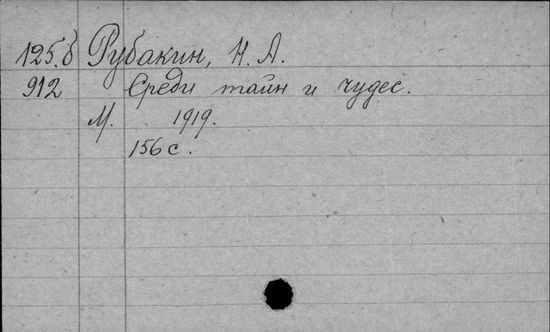 125.б Рубакин, Н. А.
912 Среди тайн и чудес.
М. 1919.
156 с.